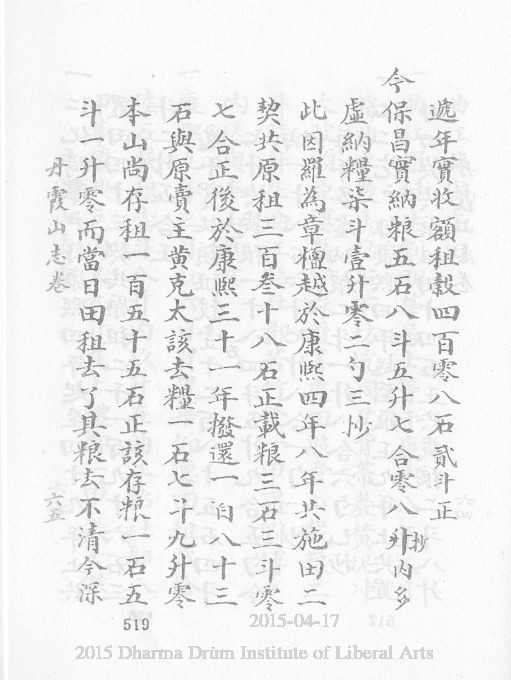 遞年實收額租穀四百零八石貳斗正
今保昌實納粮五石八斗五升七合零八升抄內多
虛納糧柒斗壹升零二勺三抄
此因羅為章檀越於康熙四年八年共施田二
契共原租三百叁十八石正載粮三石三斗零
七合正後於康熙三十一年撥還一百八十三
石與原賣主黃克太該去糧一石七斗九升零
本山尚存租一百五十五石正該存粮一石五
斗一升零而當日田租去了其粮去不清今深
丹霞山志卷 六五
519
2015-04-17
2015 Dharma Drum Institute of Liberal Arts